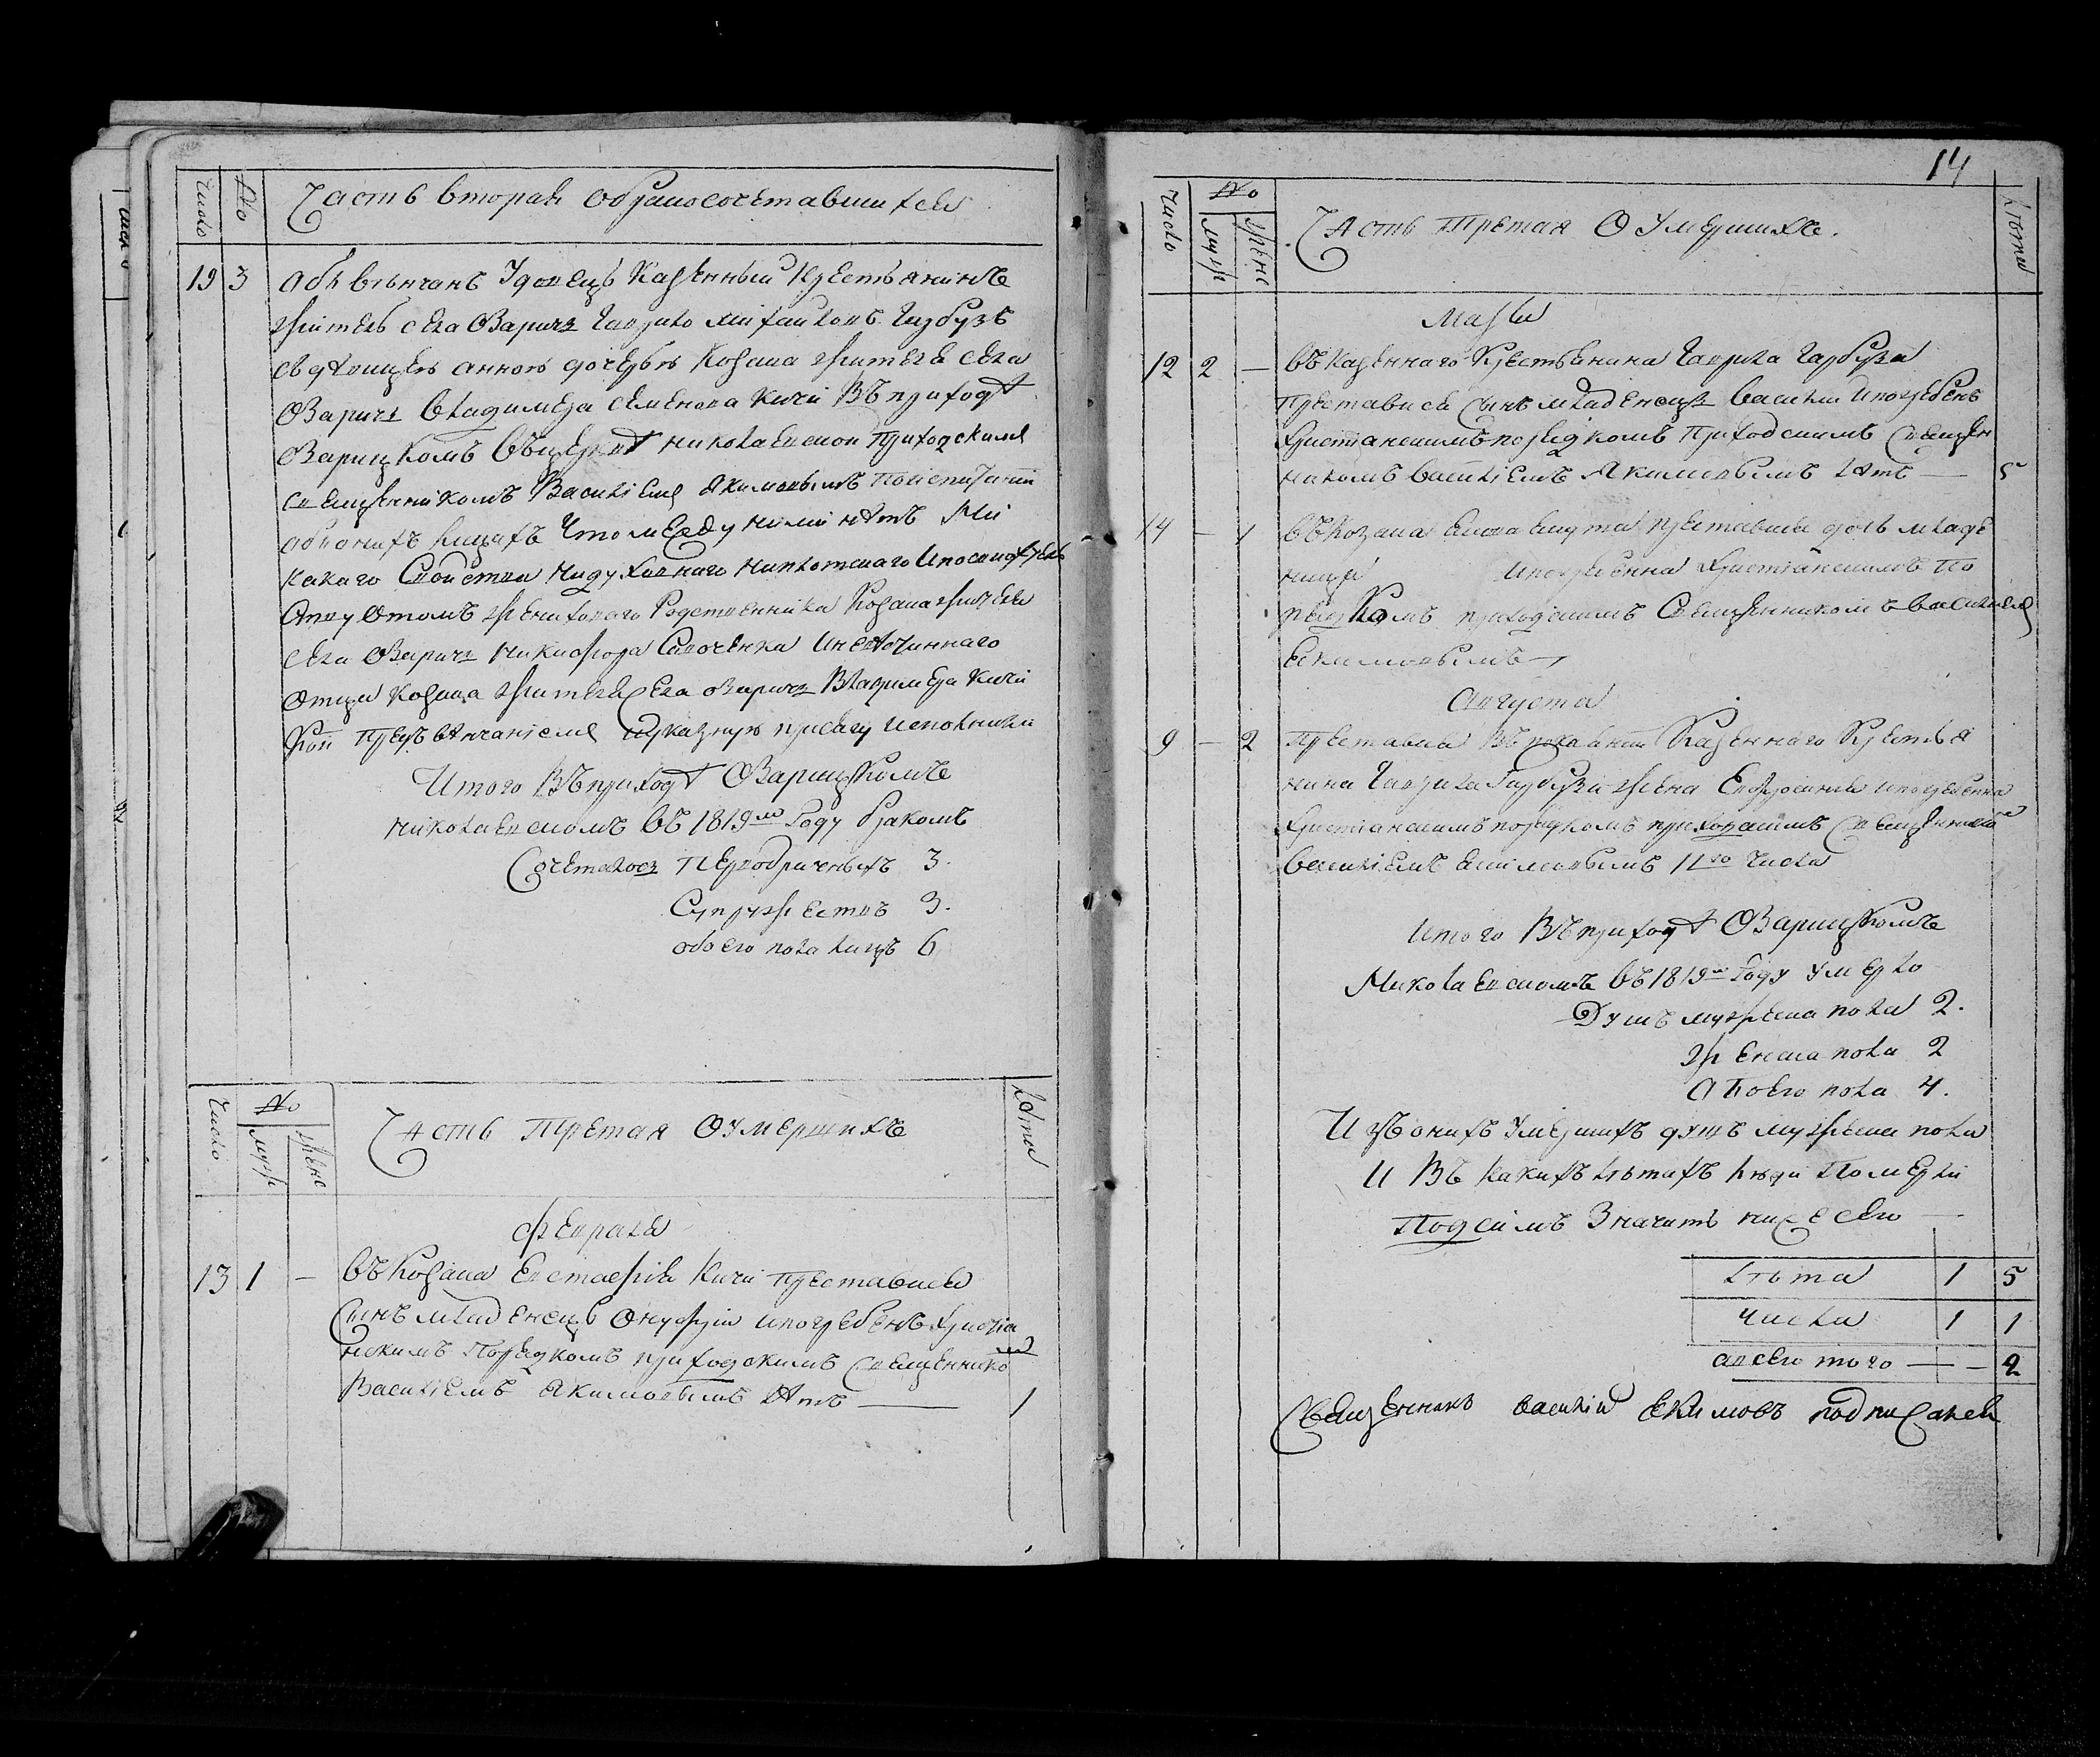 Число № Часть вторая о бракосочетавшихся
19 3 Обвѣнчанъ Удовецъ Казенный Крестьянинъ
житель села Озаричъ Гаврило Михайловъ Гарбузъ
съ дѣвицею Анною дочерью Козака жителя села
Озаричъ Владимера Семенова Кичи Въ приходѣ
Озарицкомъ Въ церквѣ Николаевской Приходскимъ
священникомъ Василіемъ Якимовымъ По испитаніи
обоихъ лицахъ Что между ними нѣтъ Ни
какаго Свойства ни духовнаго ни плотскаго и по
о томъ женихового Родственника Козака жителя
села Озаричъ Никифора и невѣстиннаго
Отца Козака жителя села Озаричъ Владимера Кичи
Кои предъ вѣнчаніемъ указную присягу исполнили
Итого Въ приходѣ Озарицкомъ
Николаевскомъ въ 1819м Году бракомъ
Сочеталось первобрачныхъ 3.
Супружествъ 3.
обоего пола лицъ 6
Число № муж жен Часть Третая О Умершихъ Лѣта
Февраля
13 1 — Въ Козака Евстафія Кичи преставися
Сынъ младенецъ Онуфрій и погребенъ Христіа
нскимъ Порядкомъ приходскимъ Священникомъ
Василіемъ Якимовымъ лѣтъ — 1
14
Число № муж жен Часть Третая О Умершихъ. Лѣта
Маія
12 2 — Въ казеннаго Крестьянина Гаврила Гарбуза
Преставися сынъ младенецъ Василій и погребенъ
Христіанскимъ порядкомъ Приходскимъ Священ
никомъ Василіемъ Якимовымъ лѣтъ — 5
14 — 1 Въ Козака преставися дочь младе
ница и погребенна Христіанскимъ По
рядкомъ приходскимъ Священникомъ Василіемъ
Екимовымъ —
Августа
9 — 2 Преставися Казеннаго Крестья
нина Гаврила Гарбуза жена Евфросиния и погребенна
Христіанскимъ порядкомъ приходскимъ Священникомъ
Василіемъ Екимовымъ 11го числа
Итого Въ приходѣ Озарицкомъ
Николаевскомъ въ 1819м Году умерло
Душъ мужеска пола 2.
женска пола 2
Обоего пола 4.
Изъ онихъ Умершихъ душъ мужеска пола
И Въ какихъ лѣтахъ люди Померли
Под симъ Значитъ ниже сего —
лѣта 1 5
числа 1 1
а всего того — — 2
Священникъ Василій Екимовъ подписался